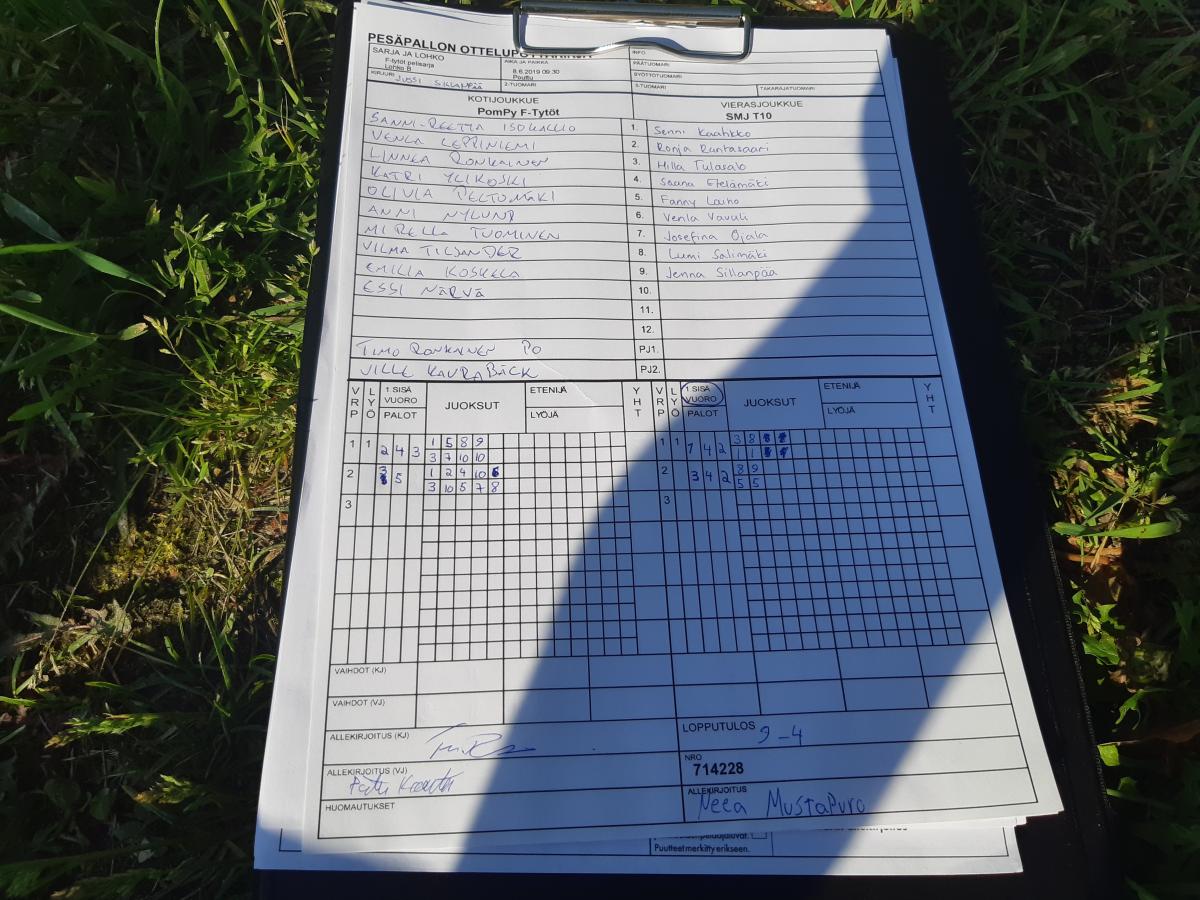 PESÄPALLON OTTELUPÖYTÄKIRJA
SARJA JA LOHKO
F-tytöt pelisarja
Lohko B
AIKA JA PAIKKA
8.6.2019 09:30
Pouttu
INFO
PÄÄTUOMARI
SYÖTTÖTUOMARI
KIRJURI JUSSI SILLANPÄÄ
2-TUOMARI
3-TUOMARI
TAKARAJATUOMARI
KOTIJOUKKUE
PomPy F-Tytöt
VIERASJOUKKUE
SMJ T10
SANNI-REETTA ISOKALLIO 1. Senni Kaahkko
VENLA LEPPINIEMI 2. Ronja Rantasaari
LINNEA RONKAINEN 3. Hilla Tulasalo
KATRI YLIKOSKI 4. Saana Etelämäki
OLIVIA PELTOMÄKI 5. Fanny Laiho
ANNI NYLUND 6. Venla Vavuli
MIRELLA TUOMINEN 7. Josefina Ojala
VILMA TILJANDER 8. Lumi Salimäki
EMILIA KOSKELA 9. Jenna Sillanpää
ESSI NÄRVÄ 10.
11.
12.
TIMO RONKAINEN PO PJ1.
VILLE KAURABÄCK PJ2.
VRP LYÖ 1 SISÄ VUORO PALOT JUOKSUT ETENIJÄ LYÖJÄ YHT VRP LYÖ 1 SISÄ VUORO PALOT JUOKSUT ETENIJÄ LYÖJÄ YHT
1 1 2 4 3 1 5 8 9 1 1 7 4 2 3 8
3 7 10 10 1 1
2 3 5 1 2 4 10 6 2 3 4 2 8 9
3 10 5 7 8 5 5
3 3
VAIHDOT (KJ)
VAIHDOT (VJ)
ALLEKIRJOITUS (KJ)
LOPPUTULOS 9-4
ALLEKIRJOITUS (VJ)
NRO
714228
HUOMAUTUKSET
ALLEKIRJOITUS
Neea Mustapuro
Puutteet merkitty erikseen.